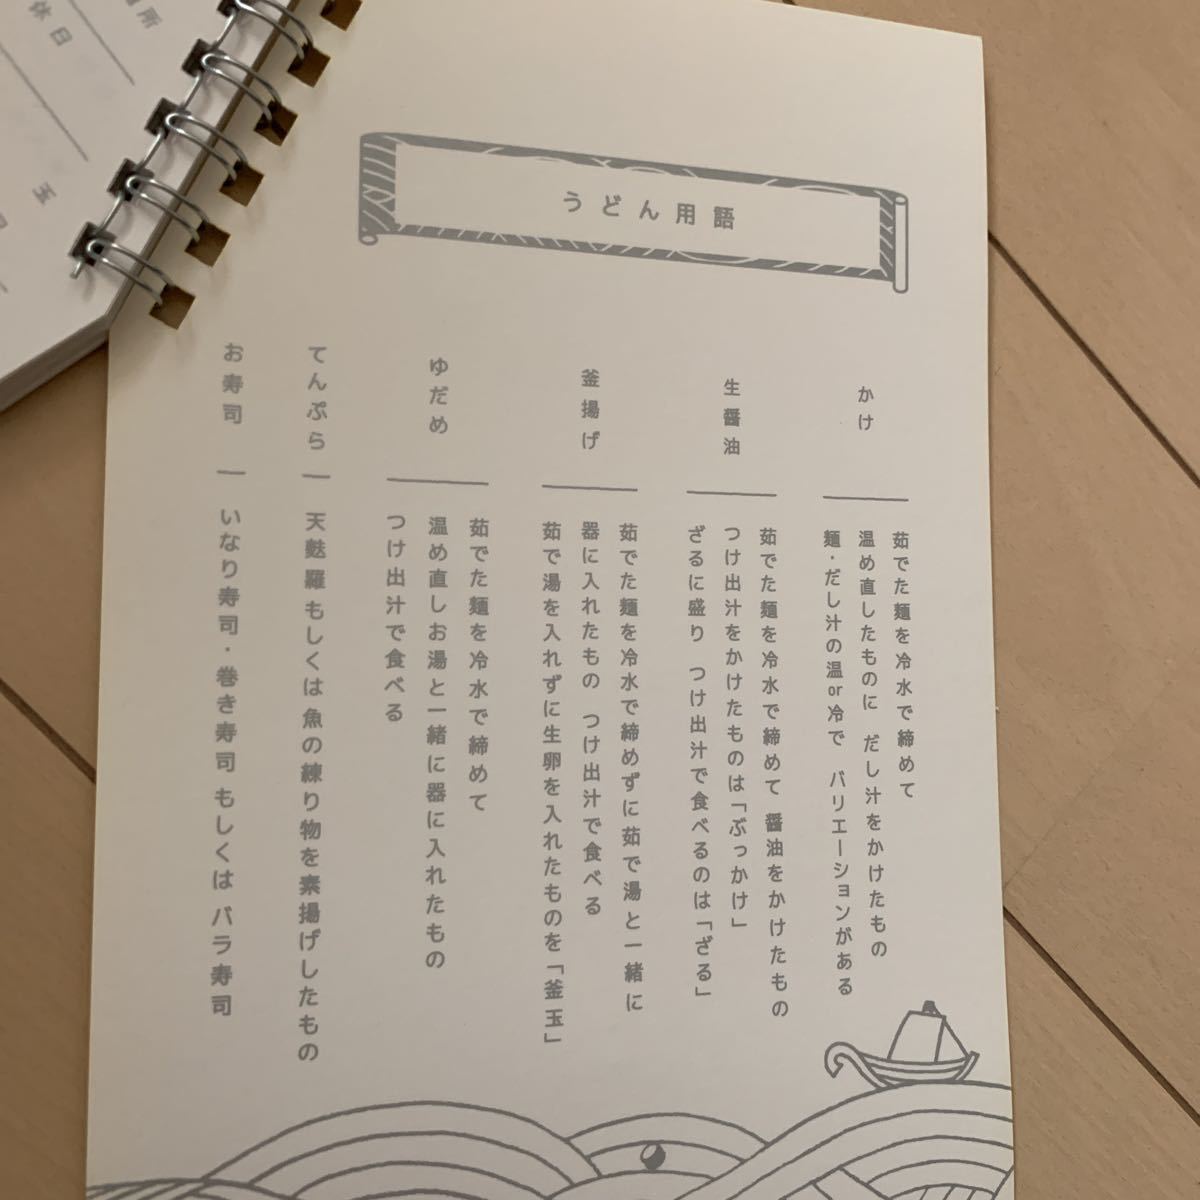 うどん用語
かけ
茹でた麺を冷水で締めて
温め直したものに だし汁をかけたもの
麺・だし汁の温or冷で バリエーションがある
生醤油
茹でた麺を冷水で締めて 醤油をかけたもの
つけ出汁をかけたものは「ぶっかけ」
ざるに盛り つけ出汁で食べるのは「ざる」
釜揚げ
茹でた麺を冷水で締めずに茹で湯と一緒に
器に入れたもの つけ出汁で食べる
茹で湯を入れずに生卵を入れたものを「釜玉」
ゆだめ
茹でた麺を冷水で締めて
温め直しお湯と一緒に器に入れたもの
つけ出汁で食べる
てんぷら
天麩羅 もしくは 魚の練り物を素揚げしたもの
お寿司
いなり寿司・巻き寿司 もしくは バラ寿司
休日
玉